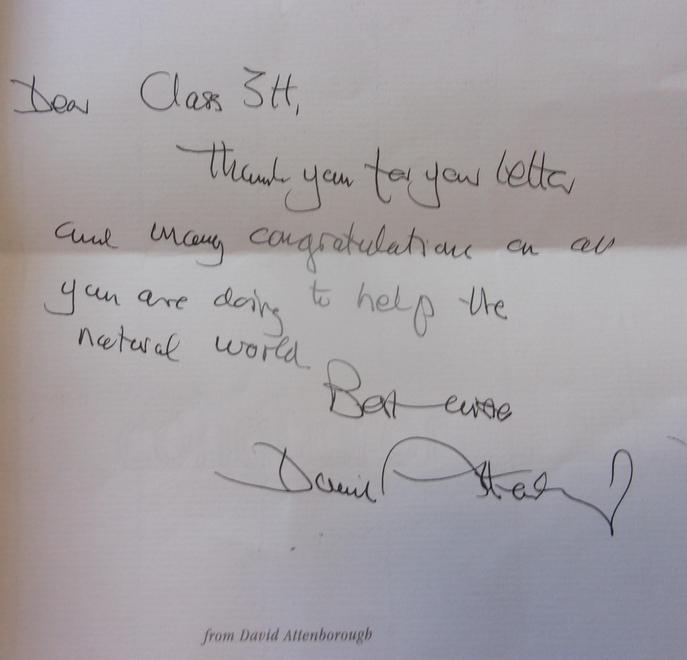 Dear Class 3H,
Thank you for your letter
and many congratulations on all
you are doing to help the
natural world
Best wishes
David Attenborough
from David Attenborough